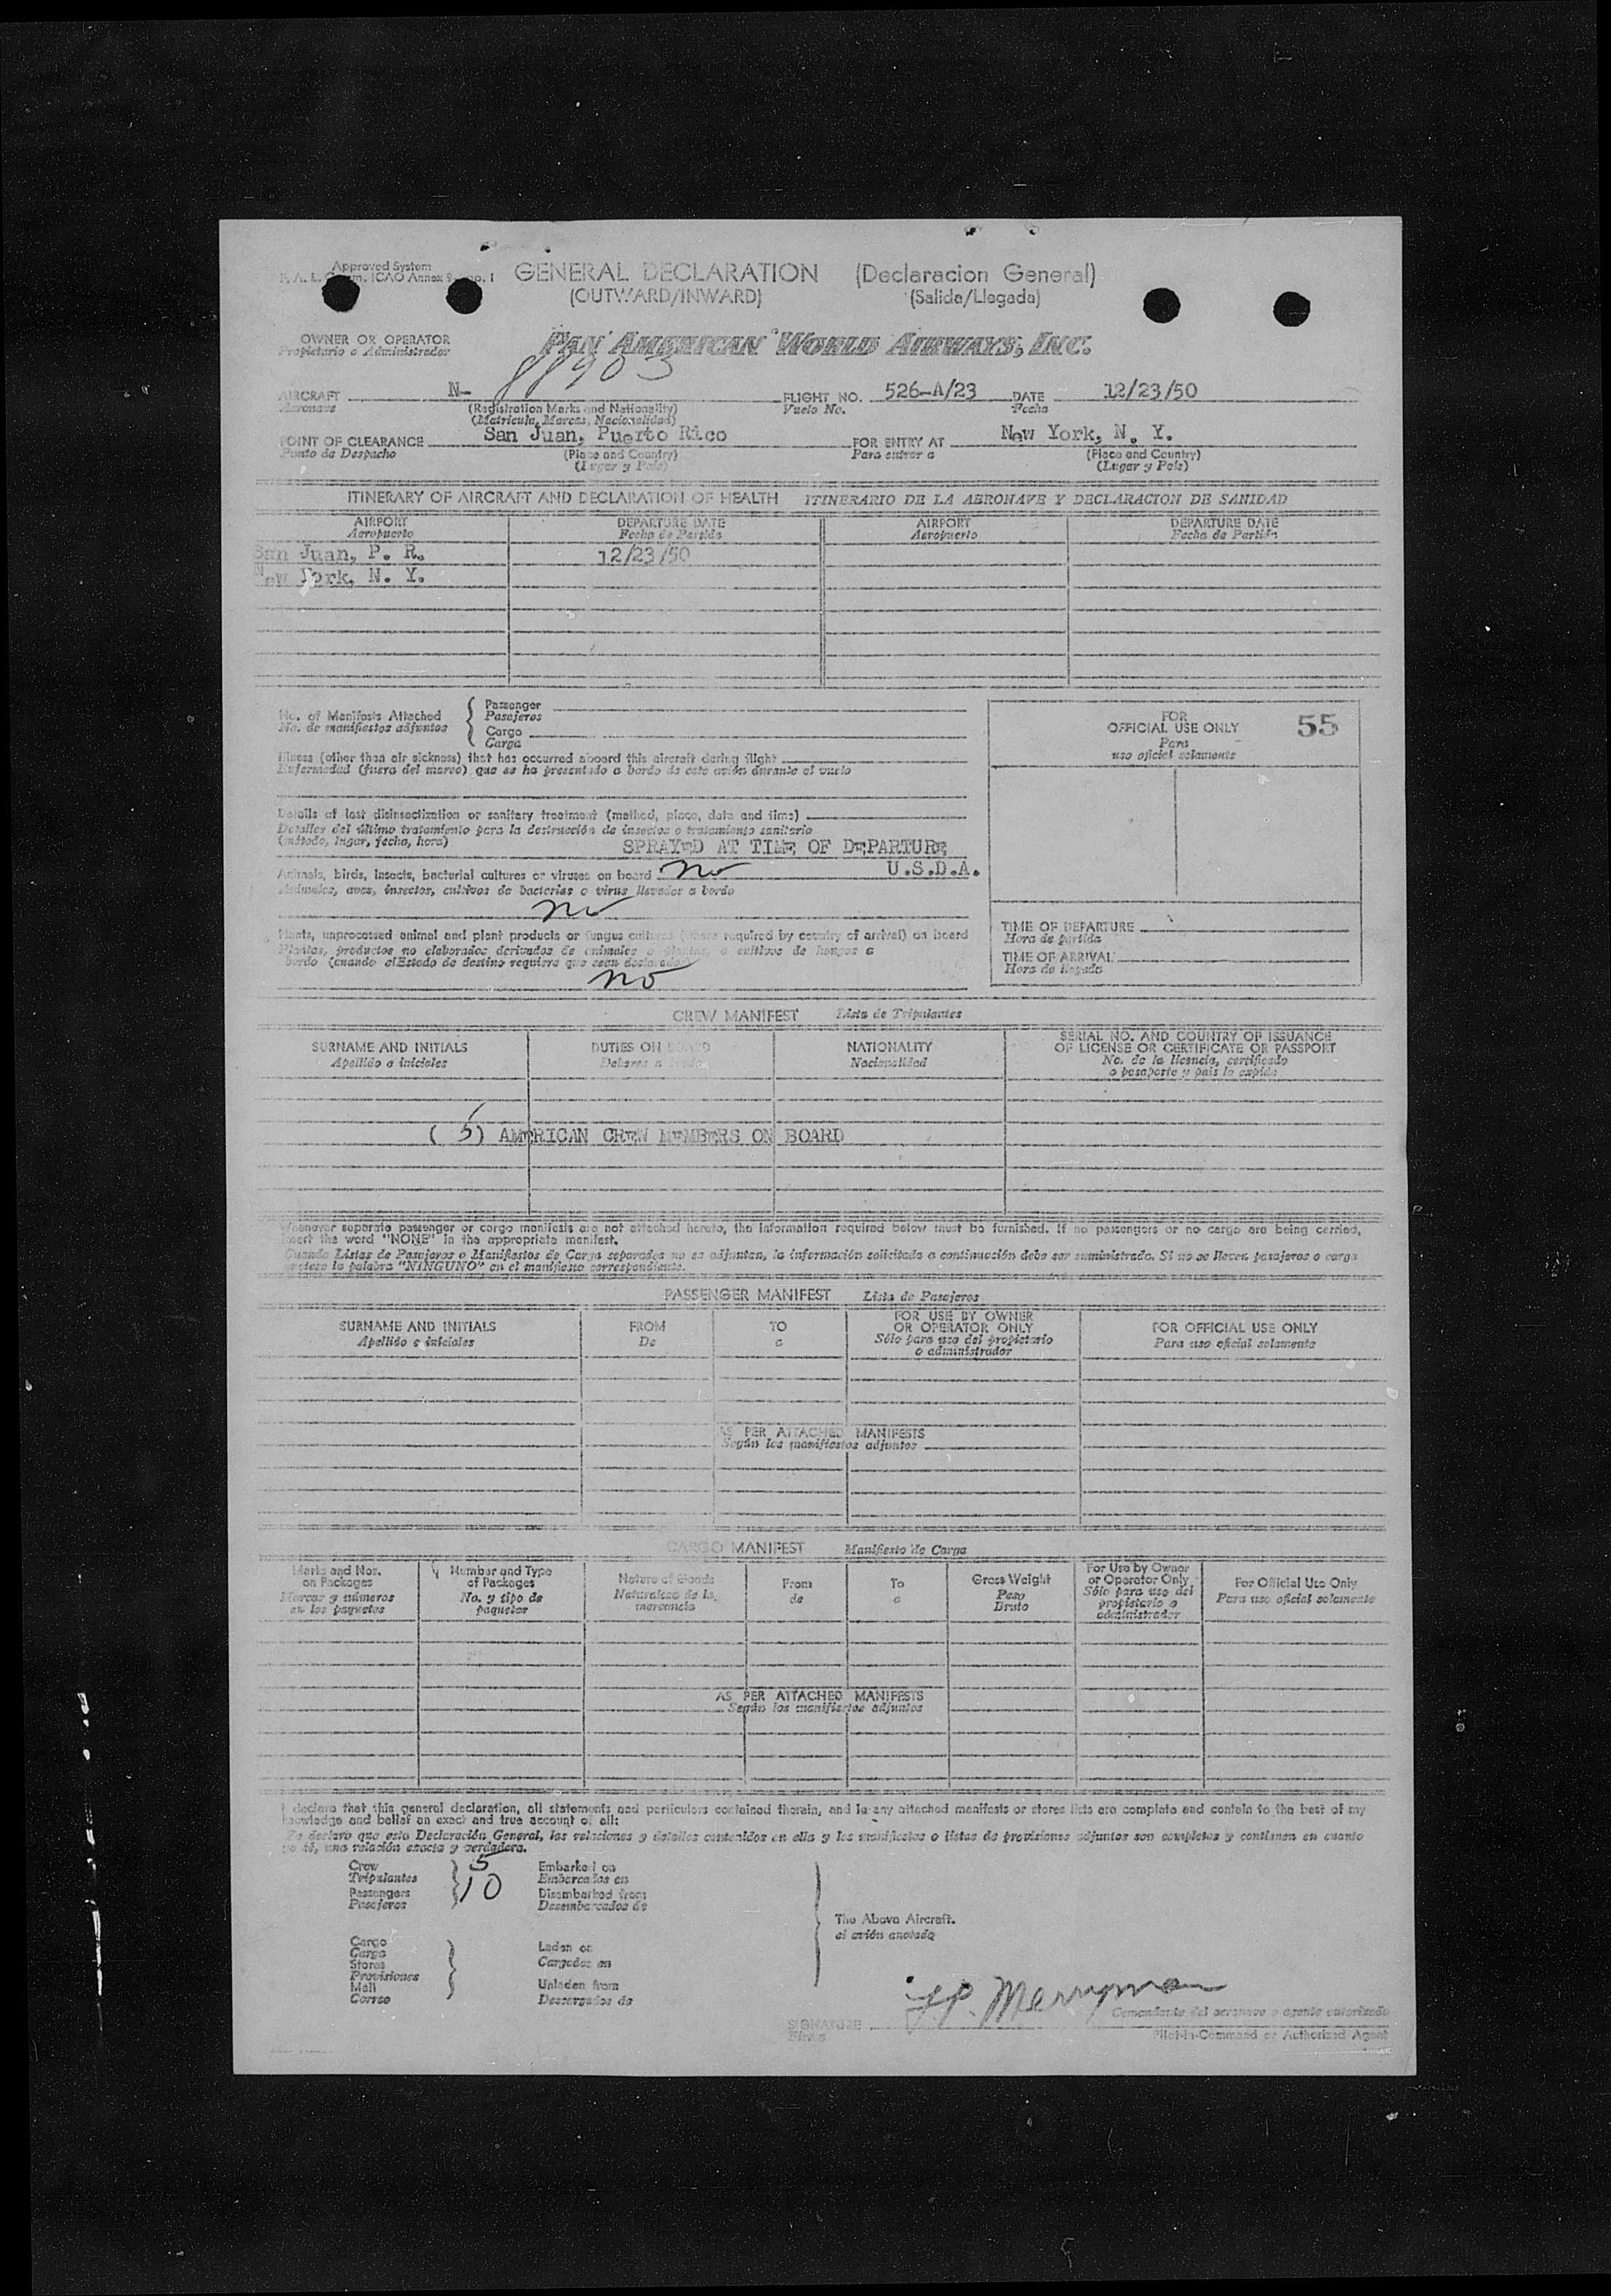 Approved System
GENERAL DECLARATION (Declaracion General)
(OUTWARD/INWARD) (Salida/Llegada)
OWNER OR OPERATOR PAN AMERICAN WORLD AIRWAYS, INC.
Propietario o Administrador
AIRCRAFT N- 88903 FLIGHT NO. 526-A/23 DATE 12/23/50
Aeronave (Registration Marks and Nationality) Vuelo No. Fecha
(Matricula, Marcas, Nacionalidad)
POINT OF CLEARANCE San Juan, Puerto Rico FOR ENTRY AT New York, N. Y.
Punto de Despacho (Place and Country) Para entrar a (Place and Country)
(Lugar y Pais) (Lugar y Pais)
ITINERARY OF AIRCRAFT AND DECLARATION OF HEALTH ITINERARIO DE LA AERONAVE Y DECLARACION DE SANIDAD
AIRPORT DEPARTURE DATE AIRPORT DEPARTURE DATE
Aeropuerto Fecha de Partida Aeropuerto Fecha de Partida
San Juan, P. R. 12/23/50
New York, N. Y.
No. of Manifests Attached Passenger
No. de manifiestos adjuntos Pasajeros
Cargo
Carga
FOR
OFFICIAL USE ONLY 55
Para
uso oficial solamente
Illness (other than air sickness) that has occurred aboard this aircraft during flight
Enfermedad (fuera del mareo) que se ha presentado a bordo de este avión durante el vuelo
Details of last disinsectization or sanitary treatment (method, place, date and time)
Detalles del último tratamiento para la destrucción de insectos o tratamiento sanitario
(método, lugar, fecha, hora) SPRAYED AT TIME OF DEPARTURE
Animals, birds, insects, bacterial cultures or viruses on board no U.S.D.A.
Animales, aves, insectos, cultivos de bacterias o virus llevados a bordo
no
Plants, unprocessed animal and plant products or fungus cultures (where required by country of arrival) on board
Plantas, productos no elaborados derivados de animales o plantas, o cultivos de hongos a
bordo (cuando el Estado de destino requiera que sean declarados)
no
TIME OF DEPARTURE
Hora de partida
TIME OF ARRIVAL
Hora de llegada
CREW MANIFEST Lista de Tripulantes
SURNAME AND INITIALS DUTIES ON BOARD NATIONALITY SERIAL NO. AND COUNTRY OF ISSUANCE
OF LICENSE OR CERTIFICATE OR PASSPORT
Apellido e iniciales Deberes a bordo Nacionalidad No. de la licencia, certificado
o pasaporte y pais lo expide
( 5 ) AMERICAN CREW MEMBERS ON BOARD
Whenever separate passenger or cargo manifests are not attached hereto, the information required below must be furnished. If no passengers or no cargo are being carried,
insert the word "NONE" in the appropriate manifest.
Cuando Listas de Pasajeros o Manifiestos de Carga separados no se adjuntan, la información solicitada a continuación debe ser suministrada. Si no se llevan pasajeros o carga
anótese la palabra "NINGUNO" en el manifiesto correspondiente.
PASSENGER MANIFEST Lista de Pasajeros
SURNAME AND INITIALS FROM TO FOR USE BY OWNER
OR OPERATOR ONLY FOR OFFICIAL USE ONLY
Apellido e iniciales De a Sólo para uso del propietario
o administrador Para uso oficial solamente
AS PER ATTACHED MANIFESTS
Según los manifiestos adjuntos
CARGO MANIFEST Manifiesto de Carga
Marks and Nos.
on Packages
Marcas y números
en los paquetes
Number and Type
of Packages
No. y tipo de
paquetes
Nature of Goods
Naturaleza de la
mercancia
From
de
To
a
Gross Weight
Peso
Bruto
For Use by Owner
or Operator Only
Sólo para uso del
propietario o
administrador
For Official Use Only
Para uso oficial solamente
AS PER ATTACHED MANIFESTS
Según los manifiestos adjuntos
I declare that this general declaration, all statements and particulars contained therein, and in any attached manifests or stores lists are complete and contain to the best of my
knowledge and belief an exact and true account of all:
Yo declaro que esta Declaración General, las relaciones y detalles contenidos en ella y los manifiestos o listas de provisiones adjuntos son completos y contienen en cuanto
yo sé, una relación exacta y verdadera.
Crew 5 Embarked on
Tripulantes Embarcados en
Passengers 10 Disembarked from
Pasajeros Desembarcados de
The Above Aircraft.
el avión anotado
Cargo
Carga Laden on
Stores Cargados en
Provisiones
Mail Unladen from
Correo Descargados de
J.P. Merryman
Comandante del aeronave o agente autorizado
SIGNATURE
Firma Pilot-in-Command or Authorized Agent